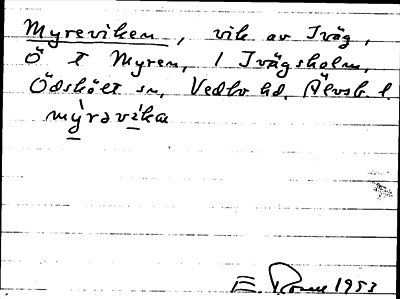 Myreviken, vik av Iväg,
Ö t Myren, i Ivägsholm,
Ödskölt sn, Vedbo hd. Älvsb. l.
mỳrəvíka
E 1953